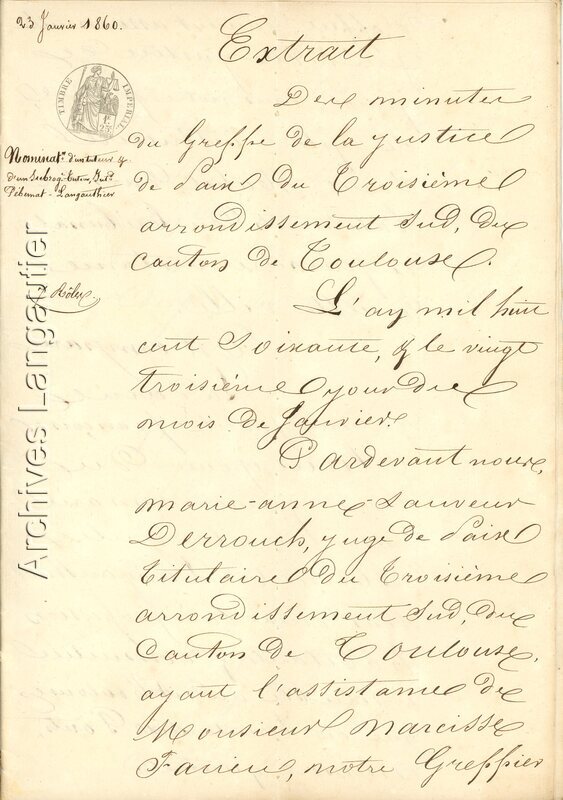 23 Janvier 1860.
Extrait
TIMBRE IMPERIAL
Des minutes
du Greffe de la justice
de Paix du Troisième
arrondissement Sud, du
canton de Toulouse.
Nominat.n d'un tuteur &
d'un Subrogé-tuteur,
Pébernat - Langauthier
2 Rôles.
L'an mil huit
cent Soixante, & le vingt
troisième jour du
mois de Janvier.
Pardevant nous,
marie-anne-Sauveur
Derrouch, juge de Paix
titulaire du Troisième
arrondissement Sud, du
Canton de Toulouse,
ayant l'assistance de
Monsieur Narcisse
notre Greffier
Archives Langautier